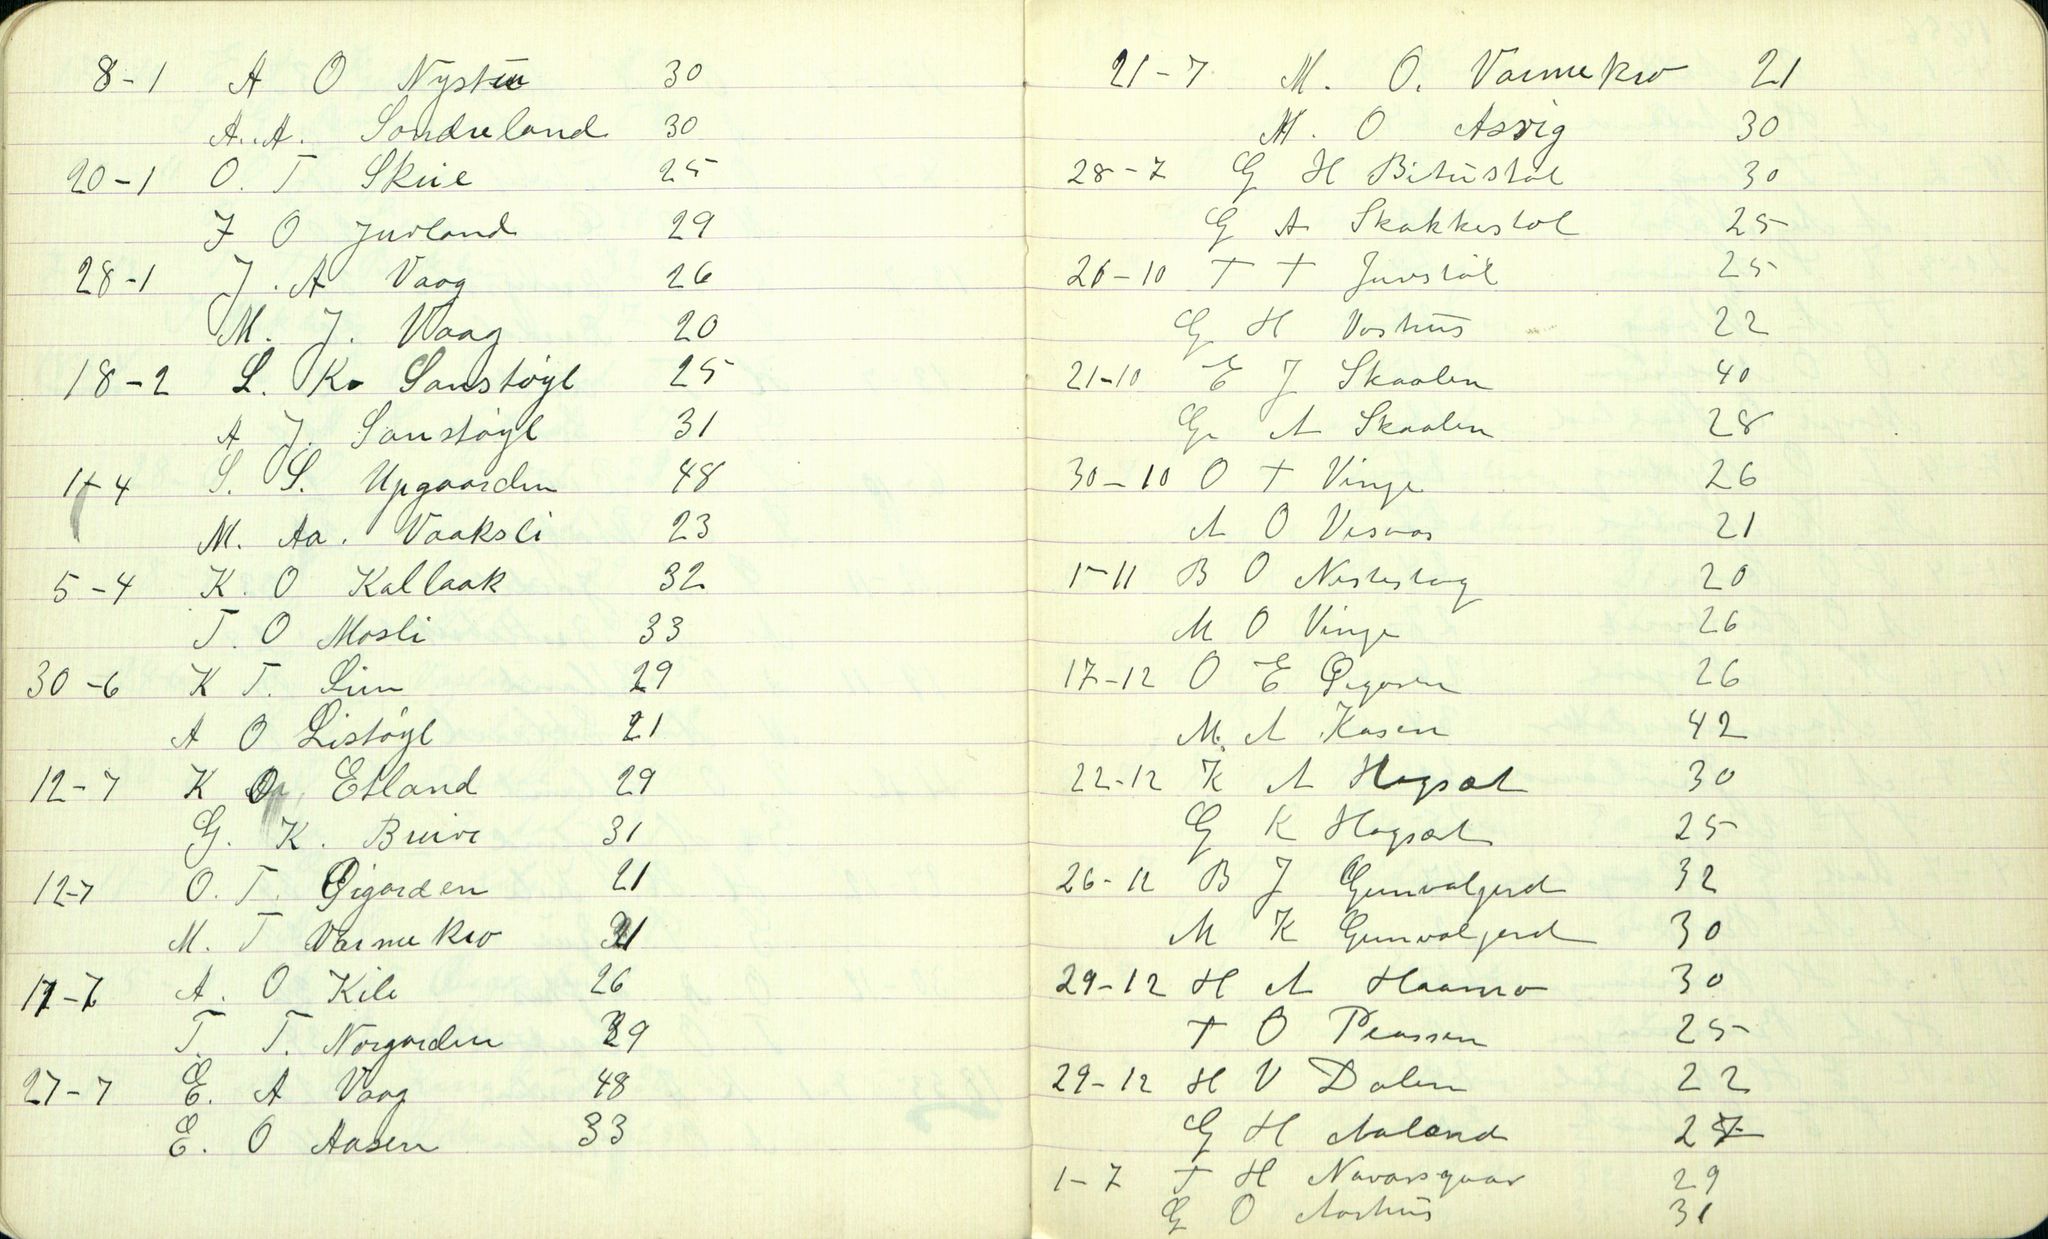 8-1 A O Nystu 30
A. A. Sondreland 30
20-1 O. T Skrie 25
J O Juvland 29
28-1 J. A Vaag 26
M. J. Vaag 20
18-2 L. K. Sanstøyl 25
A J. Sanstøyl 31
1-4 S. S. Upgaarden 48
M. Aa. Vaaksli 23
5-4 K. O Kallaak 32
T. O Mosli 33
30-6 K T. Lim 29
A O Listøyl 21
12-7 K O Etland 29
G. K. Breive 31
12-7 O. T. Øigarden 21
M. T Varmekro 21
17-7 A. O Kile 26
T. T. Norgarden 29
27-7 E. A Vaag 48
E. O Aasen 33
21-7 M. O. Varmekro 21
M. O Asvig 30
28-7 G H Bitustøl 30
G A Skakkestøl 25
26-10 T T Juvstøl 25
G H Vashus 22
21-10 E J Skaalen 40
G A Skaalen 28
30-10 O T Vinge 26
A O Visvas 21
1-11 B O Nestestog 20
M O Vinge 26
17-12 O E 26
M. A Kasen 42
22-12 K A Hagsæt 30
G K Hagsæt 25
26-12 B J Gunvalgerd 32
M K Gunvalgerd 30
29-12 H A Haamo 30
T O Plassen 25
29-12 H V Dalen 22
G H Aaland 27
1-7 T H Navarsgaar 29
G O Aashus 31